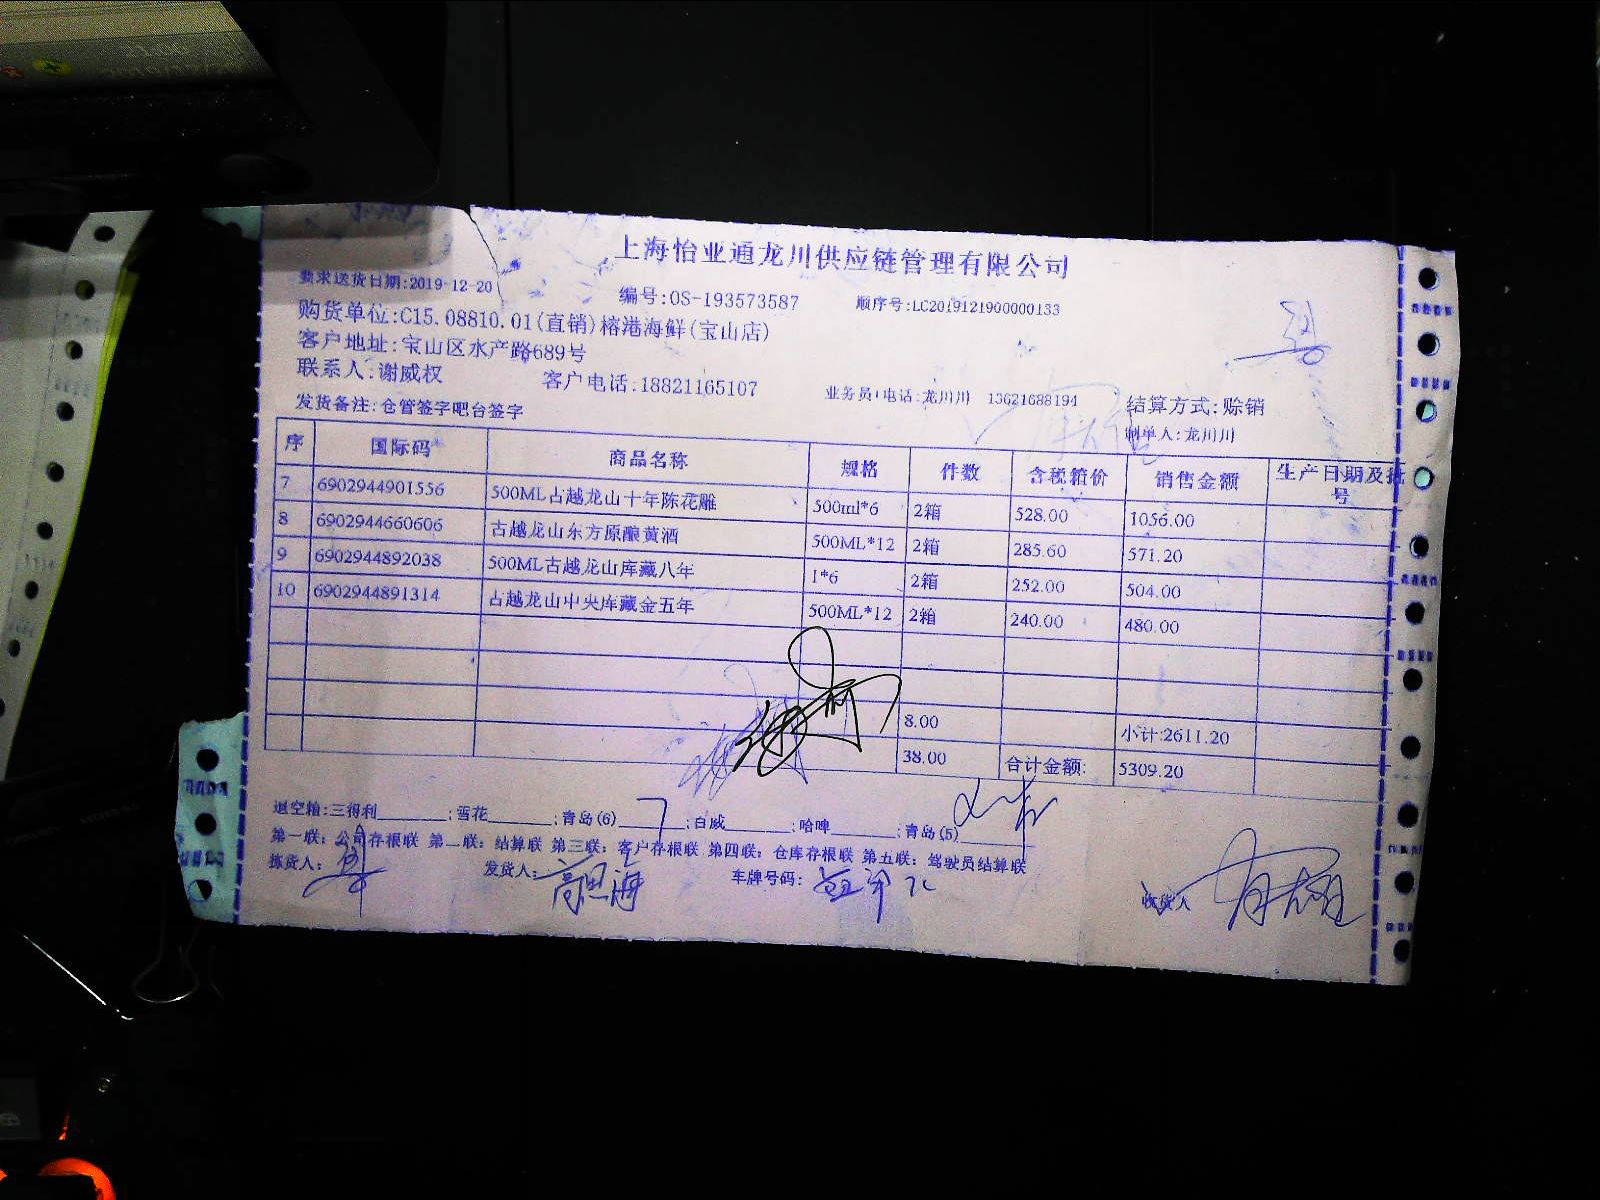 上海怡亚通龙川供应链管理有限公司
要求送货日期:2019-12-20 编号:OS-193573587 顺序号:LC2019121900000133
购货单位:C15.08810.01(直销)榕港海鲜(宝山店)
客户地址:宝山区水产路689号
联系人:谢威权 客户电话:18821165107 业务员:电话:龙川川 13621688194 结算方式:赊销
发货备注:仓管签字吧台签字 制单人:龙川川
序 国际码 商品名称 规格 件数 含税箱价 销售金额 生产日期及批号
7 6902944901556 500ML古越龙山十年陈花雕 500ml*6 2箱 528.00 1056.00
8 6902944660606 古越龙山东方原酿黄酒 500ML*12 2箱 285.60 571.20
9 6902944892038 500ML古越龙山库藏八年 1*6 2箱 252.00 504.00
10 6902944891314 古越龙山中央库藏金五年 500ML*12 2箱 240.00 480.00
8.00 小计:2611.20
38.00 合计金额: 5309.20
退空箱:三得利______;雪花______;青岛(6)______;白威______;哈啤______;青岛(5)______
第一联：公司存根联 第二联：结算联 第三联：客户存根联 第四联：仓库存根联 第五联：驾驶员结算联
拣货人: 发货人: 高思海 车牌号码: 收货人